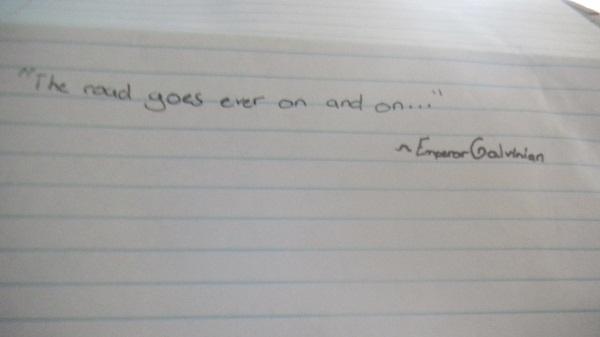 "The road goes ever on and on..."
~ Emperor Galvinian